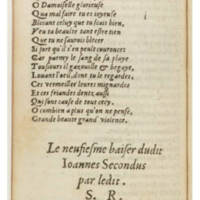 O Damoiselle glorieuse
Qua mal faire tu es ioyeuse
Blessant celuy que tu scais bien,
Veu ta beaulte tant estre rien
Que tu ne saurois blecer
Si fort qu'il s'en peult courroucer
Car parmy le sang de sa playe
Tousiours il gazouille & begaye,
Louant l'œil, dont tu le regardes,
Ces vermeilles leures mignardes
Et ces friandes dentz aussi
Qui sont cause de tout cecy.
O combien a plus qu'on ne pense,
Grande beaulte grand' violence.
Le neufiesme baiser dudit
Ioannes Secondus
par ledit.
S. R.